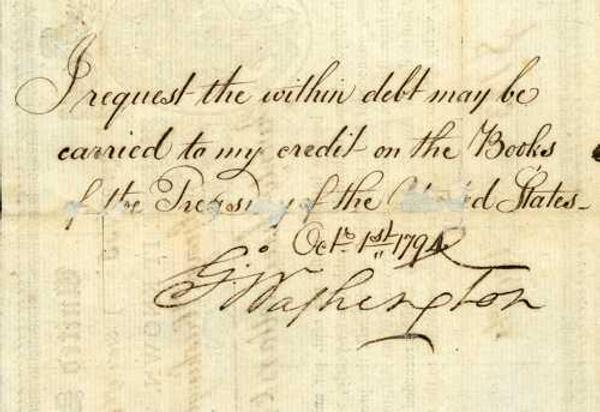 I request the within debt may be
carried to my credit on the Books
of the Treasury of the United States_
Octr. 1st. 179
Go. Washington